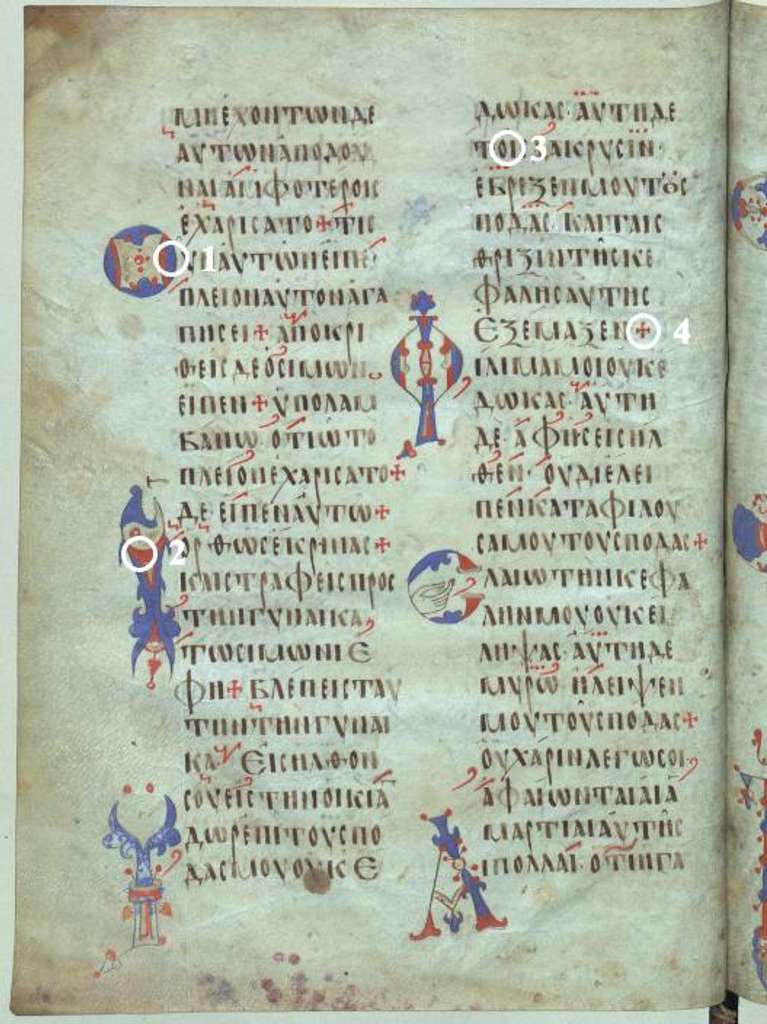 ΜΗ ΕΧΟΝΤΩΝ ΔΕ
ΑΥΤΩΝ ΑΠΟΔΟΥ
ΝΑΙ ΑΜΦΟΤΕΡΟΙϹ
ΕΧΑΡΙϹΑΤΟ + ΤΙϹ
ΟΥΝ ΑΥΤΩΝ ΕΙΠΕ
ΠΛΕΙΟΝ ΑΥΤΟΝ ΑΓΑ
ΠΗϹΕΙ + ΑΠΟΚΡΙ
ΘΕΙϹ ΔΕ Ο ϹΙΜΩΝ
ΕΙΠΕΝ + ΥΠΟΛΑΜ
ΒΑΝΩ · ΟΤΙ Ω ΤΟ
ΠΛΕΙΟΝ ΕΧΑΡΙϹΑΤΟ +
Ο ΔΕ ΕΙΠΕΝ ΑΥΤΩ +
ΟΡΘΩϹ ΕΚΡΙΝΑϹ +
ΚΑΙ ϹΤΡΑΦΕΙϹ ΠΡΟϹ
ΤΗΝ ΓΥΝΑΙΚΑ
ΤΩ ϹΙΜΩΝΙ Ε
ΦΗ + ΒΛΕΠΕΙϹ ΤΑΥ
ΤΗΝ ΤΗΝ ΓΥΝΑΙ
ΚΑ ΕΙϹΗΛΘΟΝ
ϹΟΥ ΕΙϹ ΤΗΝ ΟΙΚΙΑ
ΥΔΩΡ ΕΠΙ ΤΟΥϹ ΠΟ
ΔΑϹ ΜΟΥ ΟΥΚ Ε
ΔΩΚΑϹ · ΑΥΤΗ ΔΕ
ΤΟΙϹ ΔΑΚΡΥϹΙΝ
ΕΒΡΕΞΕΝ ΜΟΥ ΤΟΥϹ
ΠΟΔΑϹ · ΚΑΙ ΤΑΙϹ
ΘΡΙΞΙΝ ΤΗϹ ΚΕ
ΦΑΛΗϹ ΑΥΤΗϹ
ΕΞΕΜΑΞΕΝ +
ΦΙΛΗΜΑ ΜΟΙ ΟΥΚ Ε
ΔΩΚΑϹ · ΑΥΤΗ
ΔΕ ΑΦ ΗϹ ΕΙϹΗΛ
ΘΕΝ · ΟΥ ΔΙΕΛΕΙ
ΠΕΝ ΚΑΤΑΦΙΛΟΥ
ϹΑ ΜΟΥ ΤΟΥϹ ΠΟΔΑϹ +
ΕΛΑΙΩ ΤΗΝ ΚΕΦΑ
ΛΗΝ ΜΟΥ ΟΥΚ ΕΙ
ΛΗΨΑϹ · ΑΥΤΗ ΔΕ
ΜΥΡΩ ΗΛΕΙΨΕΝ
ΜΟΥ ΤΟΥϹ ΠΟΔΑϹ +
ΟΥ ΧΑΡΙΝ ΛΕΓΩ ϹΟΙ
ΑΦΑΙΩΝΤΑΙ ΑΙ Α
ΜΑΡΤΙΑΙ ΑΥΤΗϹ
ΑΙ ΠΟΛΛΑΙ · ΟΤΙ ΗΓΑ
1
2
3
4